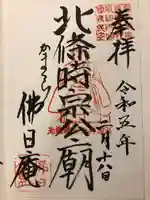 奉拝
令和五年
二月十六日
北條時宗公廟
かまくら
佛日庵